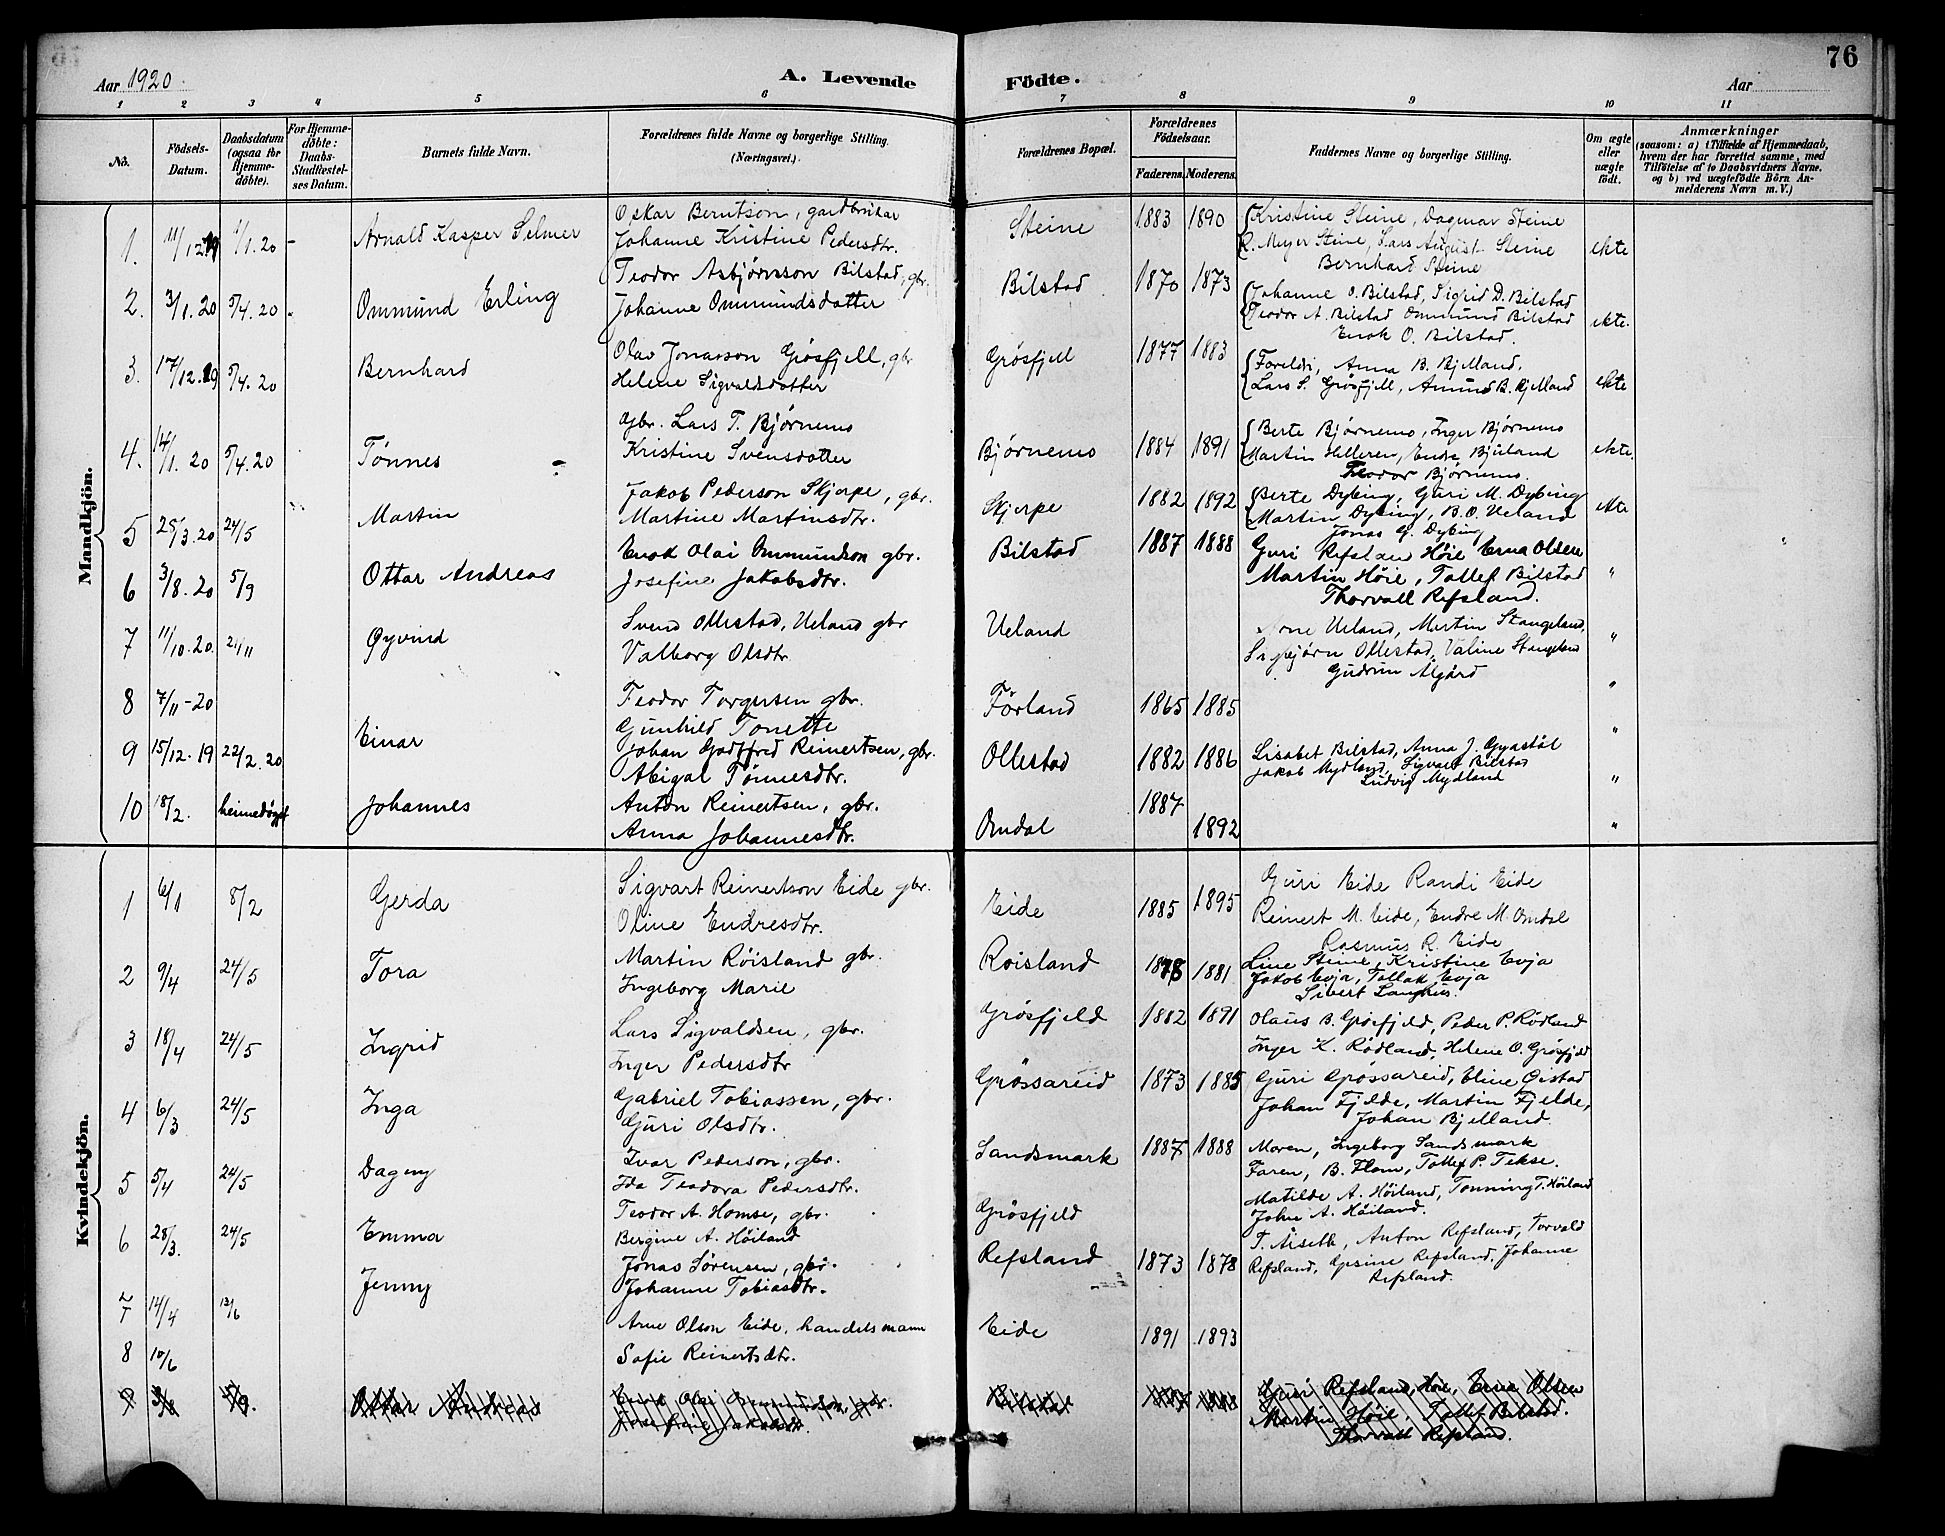 76
Aar 1920
A. Levende Födte.
Aar
1 2 3 4 5 6 7 8 9 10 11
No.
Födsels-Datum.
Daabsdatum (ogsaa for Hjemme-döbte).
For Hjemme-döbte: Daabs-Stadfæstel-ses Datum.
Barnets fulde Navn.
Forældrenes fulde Navne og borgerlige Stilling. (Næringsvei.)
Forældrenes Bopæl.
Forældrenes Födselsaar.
Faderens. Moderens.
Faddernes Navne og borgerlige Stilling.
Om ægte eller uægte födt.
Anmærkninger
(saasom: a) i Tilfælde af Hjemmedaab, hvem der har forrettet samme, med Tilföielse af to Daabsvidners Navne, og b) ved uægtefödte Börn An-melderens Navn m. V.)
Mandkjön.
1. 11/12.19 1/1.20 - Arnold Kasper Selmer
Oskar Berntson, gardbrukar
Johanne Kristine Pedersdtr.
Steine 1883 1890
Kristine Steine, Dagmar Steine
R. Meyer Steine, Lars August Steine
Bernhard Steine
ekte
2. 3/1.20 5/4.20 - Ommund Erling
Teodor Asbjørnson Bilstad, gbr.
Johanne Ommundsdatter
Bilstad 1870 1873
Johanne O. Bilstad, Sigrid D. Bilstad
Teodor A. Bilstad Ommund Bilstad
Enok O. Bilstad.
ekte.
3. 17/12.19 5/4.20 Bernhard
Olav Jonasson Grösfjell, gbr
Helene Sigvaldsdatter
Grösfjell 1877 1883
Foreldri, Anna B. Bjelland,
Lars S. Grösfjell, Amund B. Bjelland
ekte
4. 14/1.20 5/4.20 Tønnes
gbr. Lars T. Bjørnemo
Kristine Svensdatter
Bjørnemo 1884 1891
Berte Bjørnemo, Inger Bjørnemo
Martin Helleren, Endre Bjuland
Teodor Bjørnemo.
ekte.
5 25/3.20 24/5 Martin
Jakob Pederson Skjerpe, gbr.
Martine Martinsdtr.
Skjerpe 1882 1892
Berte Dybing, Guri M. Dybing
Martin Dybing, B. O. Ueland
Jonas G. Dybing
ekte
6 3/8.20 5/9 Ottar Andreas
Enok Olai Ommundson gbr.
Josefine Jakobsdtr.
Bilstad 1887 1888
Guri Refsland Höie Erna Olsen
Martin Höie, Tollef Bilstad
Thorvall Refsland.
"
7 11/10.20. 21/11 Øyvind
Svend Ollestad, Ueland gbr
Valborg Olsdtr
Ueland
Arne Ueland, Martin Stangeland,
Sigbjørn Ollestad, Valine Stangeland
Gudrun Ålgård
"
8 7/11-20
Teodor Torgersen gbr.
Gunhild Tonette
Förland 1865 1885
"
9 15/12.19 22/2.20 Einar
Johan Godtfred Reinertsen, gbr.
Abigal Tönnesdtr.
Ollestad 1882 1886
Lisabet Bilstad, Anna J. Gyastöl
Jakob Mydland, Sigvart Bilstad
Ludvig Mydland
"
10 18/2. heimedöypt Johannes
Anton Reinertsen, gbr.
Anna Johannesdtr.
Omdal 1887 1892
"
Kvindekjön.
1 6/1 8/2 Gerda
Sigvart Reinertson Eide gbr.
Oline Endresdtr.
Eide 1885 1895
Guri Eide Randi Eide
Reinert M. Eide, Endre M. Omdal
Rasmus R. Eide
2 9/4 24/5 Tora
Martin Röisland gbr.
Ingeborg Marie
Röisland 1878 1881
Line Steine, Kristine Evja
Jakob Evja, Tollak Evja
Sivert Langhus.
3 18/4 24/5 Ingrid
Lars Sigvaldsen, gbr.
Inger Pedersdtr
Grösfjeld 1882 1891
Olaus B. Grösfjeld, Peder P. Rödland
Inger K. Rödland, Helene O. Grösfjeld
4 6/3 24/5 Inga
Gabriel Tobiassen, gbr.
Guri Olsdtr.
Grössareid 1873 1885
Guri Grössareid, Eline Öistad
Johan Fjelde, Martin Fjelde,
Johan Bjelland
5 5/4 24/5 Dagny
Ivar Pederson, gbr.
Ida Teodora Pedersdtr.
Sandsmark 1887 1888
Moren, Ingeborg Sandsmark
Faren, B. Flom, Tollef P. Tekse.
6 28/3. 24/5 Emma
Teodor A. Homse, gbr.
Bergine A. Höiland
Grösfjeld
Matilde A. Höiland, Tonning T. Höiland
John A. Höiland.
7 14/4 13/6 Jenny
Jonas Sörensen, gbr.
Johanne Tobiasdtr.
Refsland 1873 1878
T. Årseth, Anton Refsland, Torvald
Refsland, Gesine Refsland, Johanne
Refsland.
8 10/6
Arne Olson Eide, handelsmann
Sofie Reinertsdtr.
Eide 1891 1893
9 3/8 5/9. Ottar Andreas
Enok Olai Ommundson, gbr.
Josefine Jakobsdtr.
Bilstad 1887 1888
Guri Refsland, Höie, Erna Olsen
Martin Höie, Tollef Bilstad.
Thorvall Refsland.